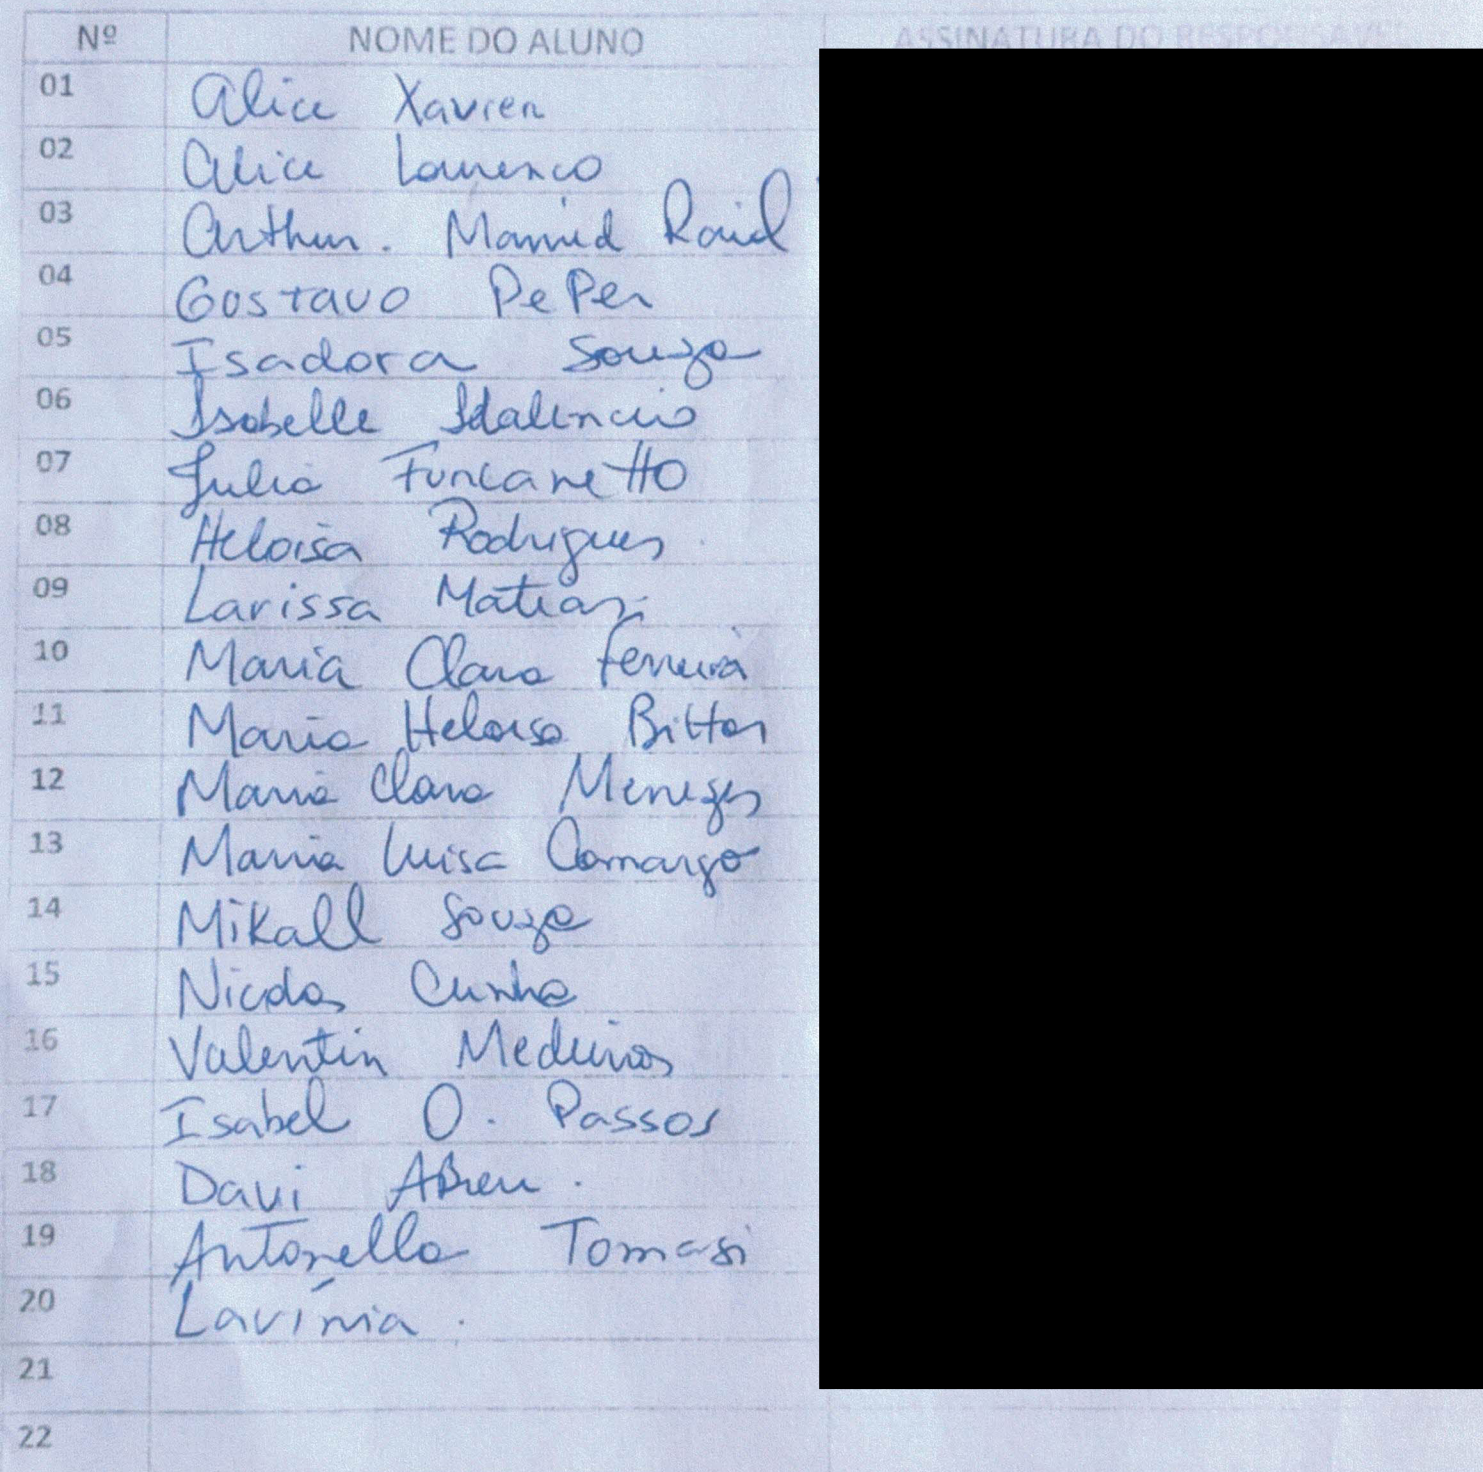 Nº NOME DO ALUNO ASSINATURA DO RESPONSAVEL
01 Alice Xavier
02 Alice Lourenco
03 Arthur. Mamed Raid
04 Gustavo PePer
05 Isadora Souza
06 Isabelle Idalencio
07 Julia Funcanetto
08 Heloisa Rodrigues
09 Larissa Matias
10 Maria Clara Ferreira
11 Maria Heloisa
12 Maria Clara Menezes
13 Maria Luisa Camargo
14 Mikall Souza
15 Nicolas Cunha
16 Valentin Medeiros
17 Isabel O. Passos
18 Davi ABreu.
19 Antonella Tomasi
20 Lavínia.
21
22